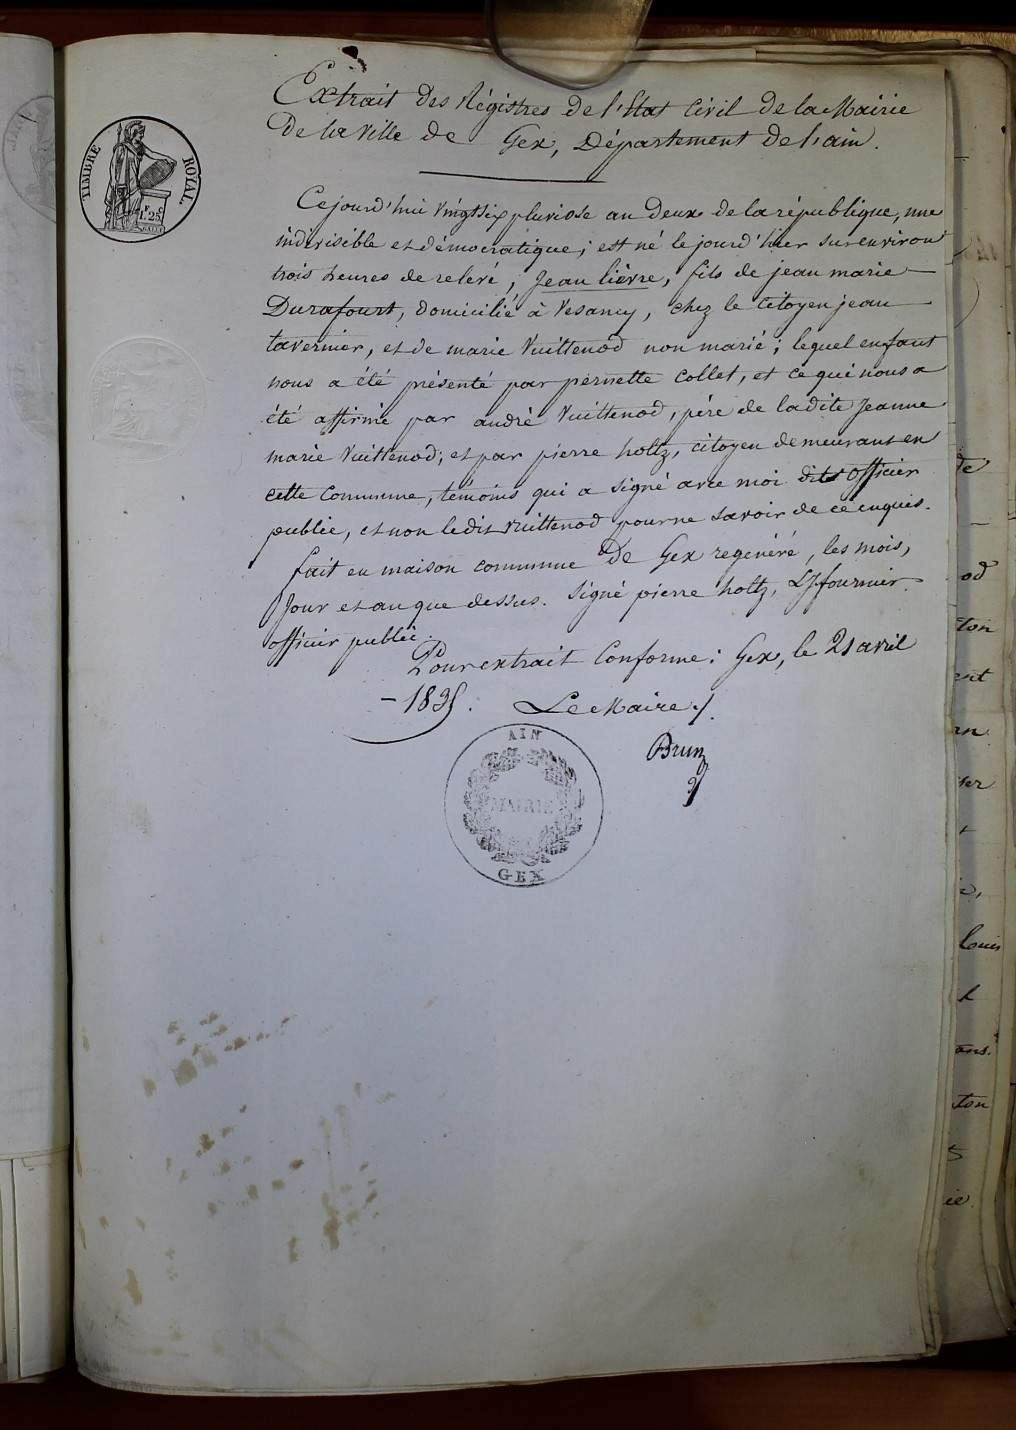 Extrait des Régistres de l'Etat Civil de la Mairie
De la Ville de Gex, Département de l'ain.
TIMBRE ROYAL.
1. 25
Cejourd'hui Vingtsix pluviose an Deux de la république, une
indivisible et démocratique; est né le jourd'hier sur environ
trois heures de relevé, Jean lièvre, fils de jean marie
Durafourt, domicilié à Vesancy, chez le citoyen jean
tavernier, et de marie Vuittenod non marié; lequel enfant
nous a été présenté par pernette Collet, et ce qui nous a
été affirmé par andré Vuittenod, père de ladite Jeanne
marie Vuittenod; et par pierre holtz, citoyen demeurant en
cette Commune, témoins qui a signé avec moi dits officier
public, et non ledit Vuittenod pour ne savoir de ce enquis.
fait en maison commune De Gex regénéré, les mois,
Jour et an que dessus. Signé pierre holtz, fournier
officier public.
Pour extrait Conforme: Gex, le 21 avril
- 1835. Le Maire,
Brun
AIN
MAIRIE
GEX
de
od
ton
louis
ans.
ton